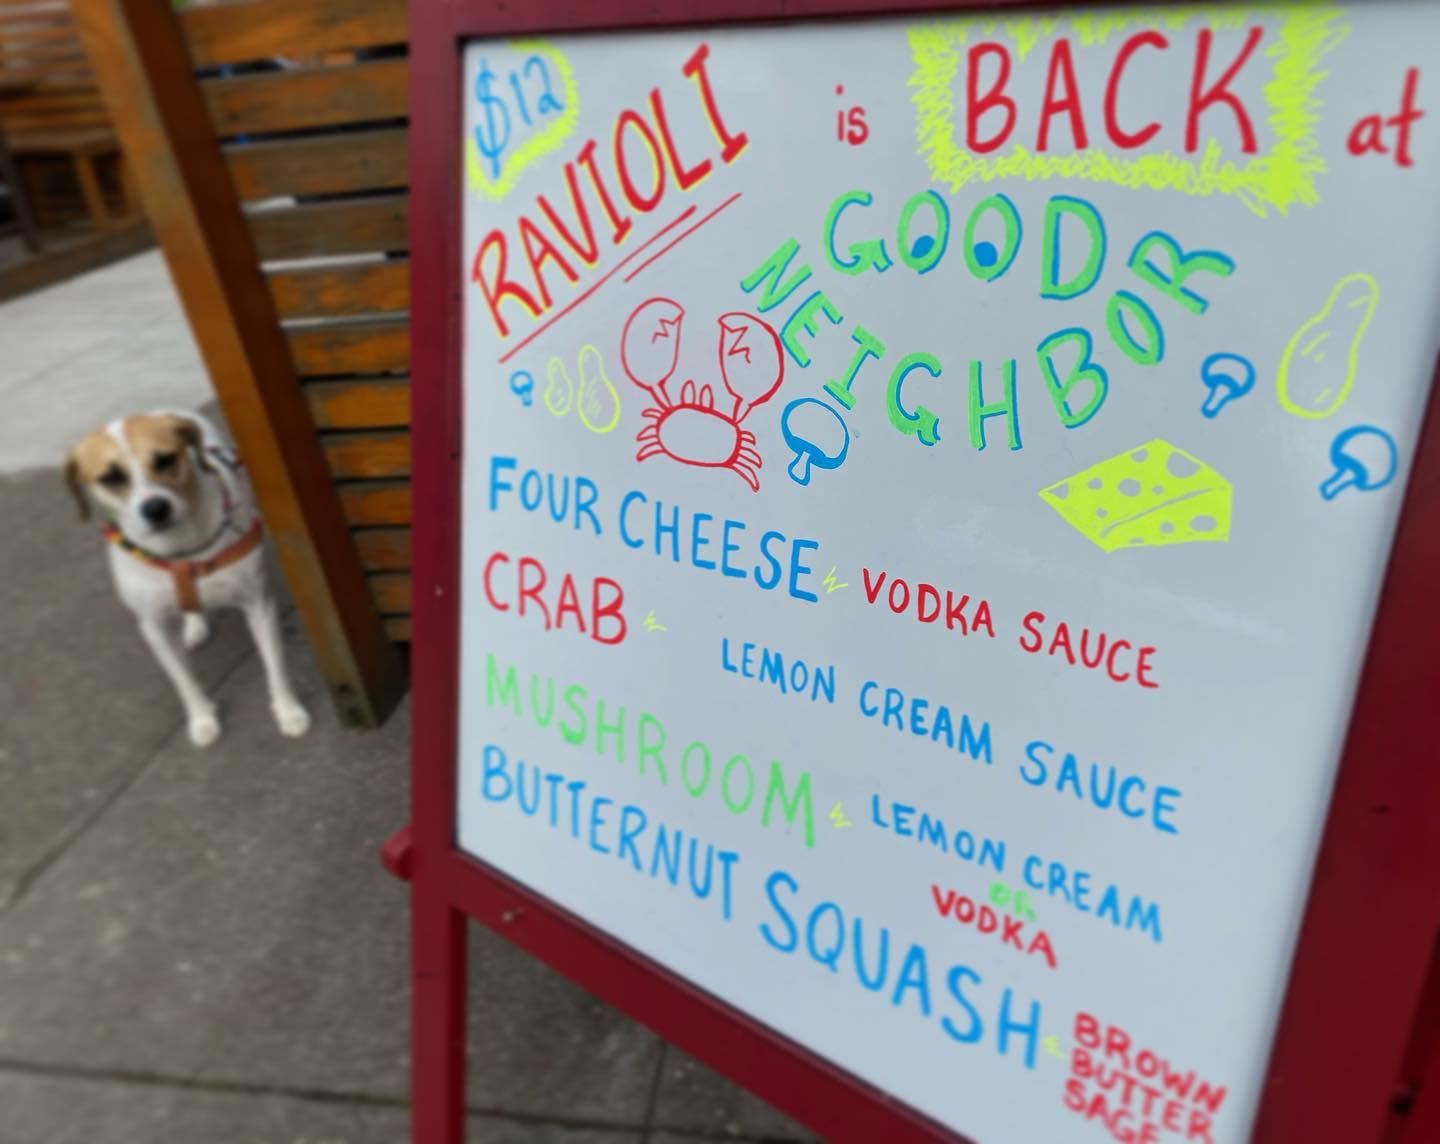 $12
RAVIOLI is BACK at
GOOD
NEIGHBOR
FOUR CHEESE VODKA SAUCE
CRAB LEMON CREAM SAUCE
MUSHROOM LEMON CREAM
OR
VODKA
BUTTERNUT SQUASH BROWN
BUTTER
SAGE